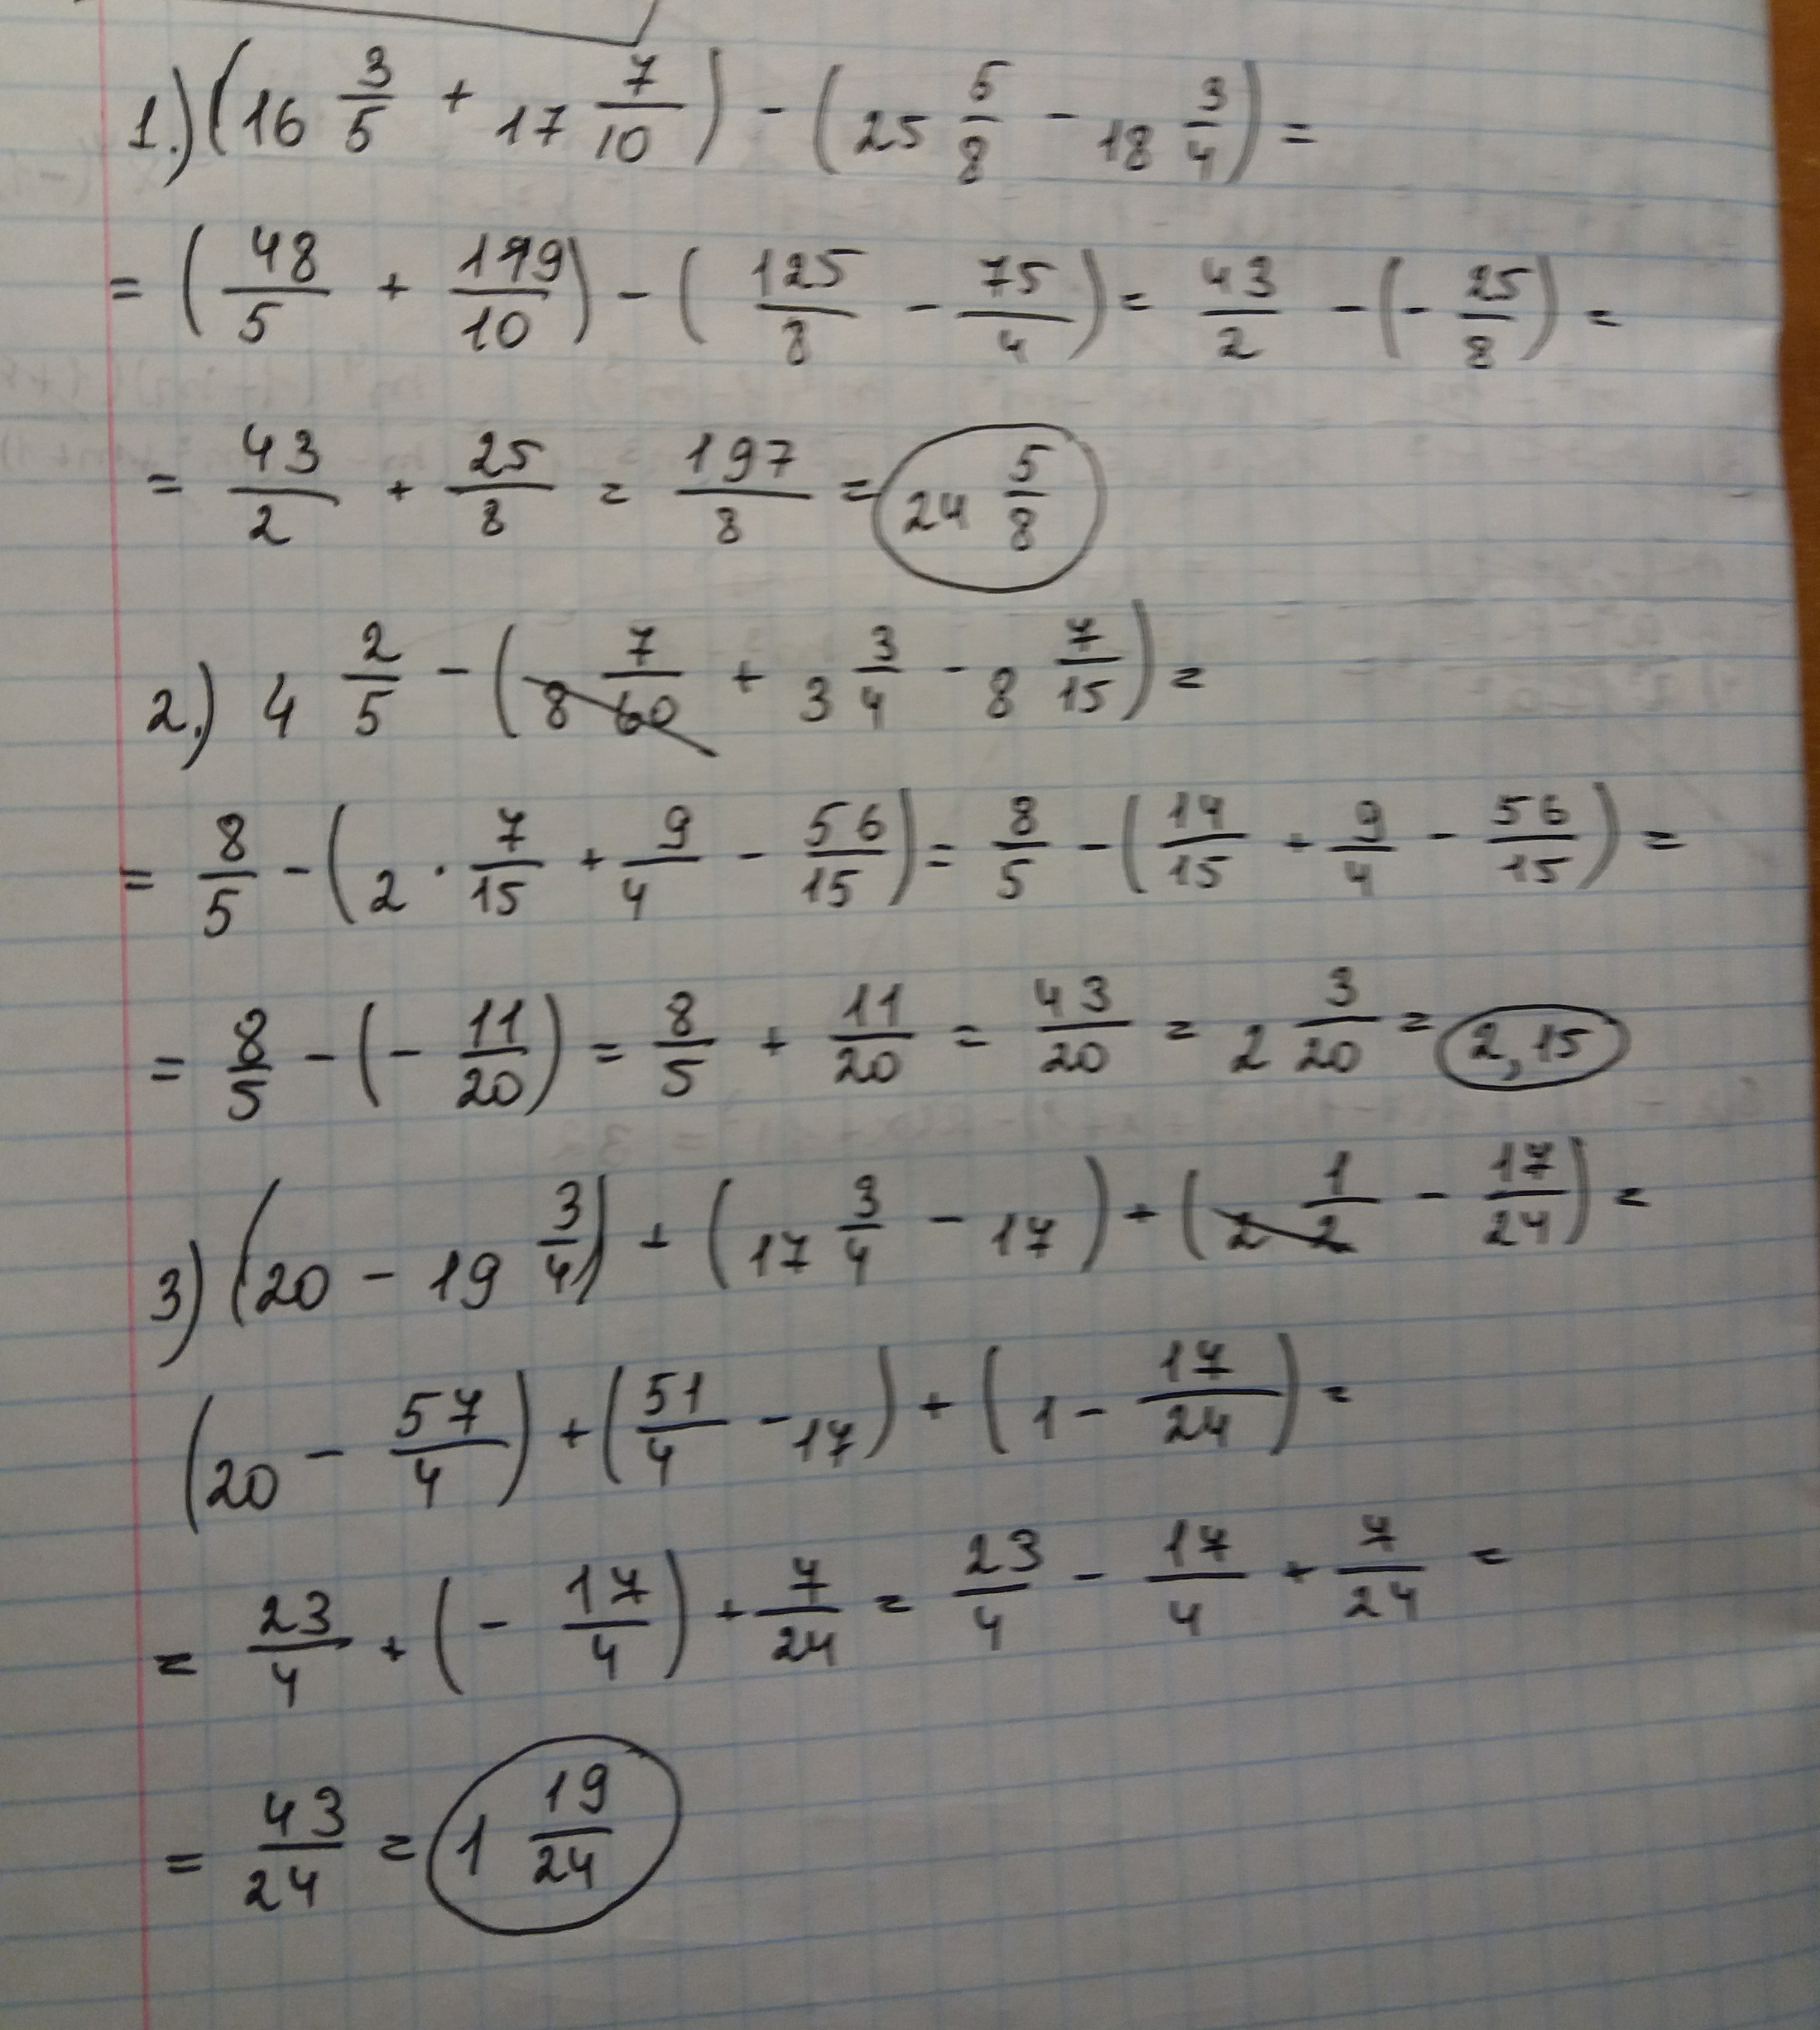 1.) (16 3/5 + 17 7/10) - (25 5/8 - 18 3/4) =
= (48/5 + 119/10) - (125/8 - 75/4) = 43/2 - (- 25/8) =
= 43/2 + 25/8 = 197/8 = 24 5/8
2.) 4 2/5 - (8 7/60 + 3 3/4 - 8 7/15) =
= 8/5 - (2 · 7/15 + 9/4 - 56/15) = 8/5 - (14/15 + 9/4 - 56/15) =
= 8/5 - (- 11/20) = 8/5 + 11/20 = 43/20 = 2 3/20 = 2,15
3) (20 - 19 3/4) + (17 3/4 - 17) + (2 1/2 - 17/24) =
(20 - 57/4) + (51/4 - 17) + (1 - 17/24) =
= 23/4 + (- 17/4) + 7/24 = 23/4 - 17/4 + 7/24 =
= 43/24 = 1 19/24